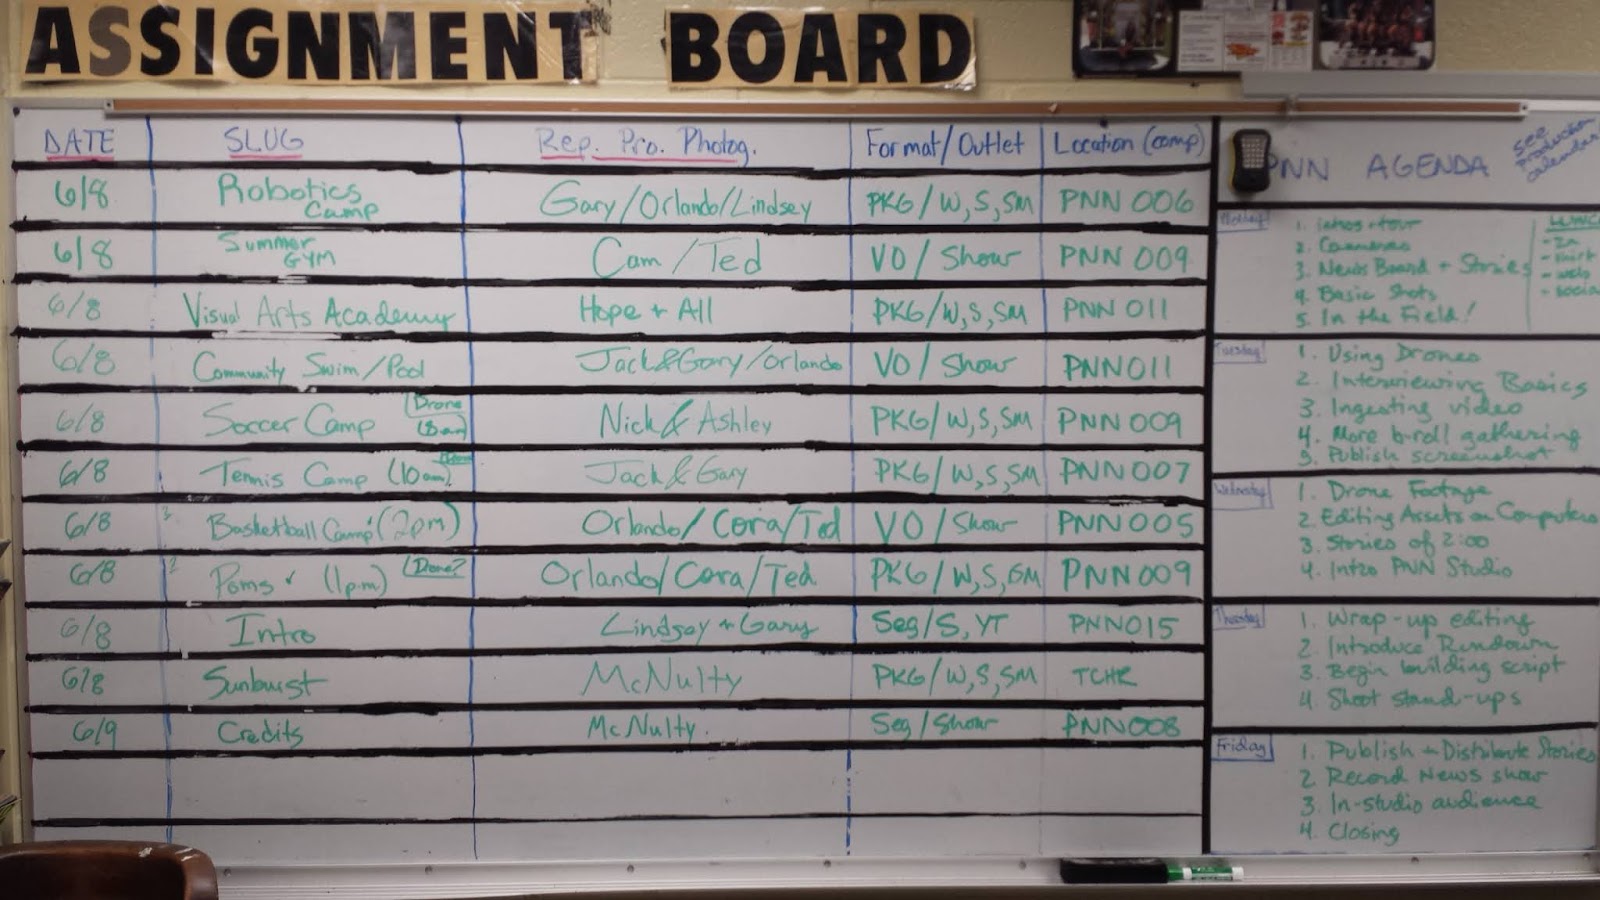 ASSIGNMENT BOARD
DATE SLUG Rep. Pro. Photog. Format/Outlet Location (comp)
6/8 Robotics Camp Gary/Orlando/Lindsey PKG/W,S,SM PNN 006
6/8 Summer GYM Cam/Ted VO/Show PNN 009
6/8 Visual Arts Academy Hope + All PKG/W,S,SM PNN 011
6/8 Community Swim/Pool Jack&Gary/Orlando VO/Show PNN011
6/8 Soccer Camp (Drone (8am) Nick & Ashley PKG/W,S,SM PNN 009
6/8 Tennis Camp (10am) Jack & Gary PKG/W,S,SM PNN007
6/8 Basketball Camp (2pm) Orlando/Cora/Ted VO/Show PNN005
6/8 Poms (1pm) (Drone? Orlando/Cora/Ted PKG/W,S,SM PNN009
6/8 Intro Lindsey + Gary Seg/S, YT PNN015
6/8 Sunburst McNulty PKG/W,S,SM TCHR
6/9 Credits McNulty. Seg/Show PNN008
PNN AGENDA
See
Production
Calendar
Monday
1. intros + tour
2. Cameras
3. News Board + Stories
4. Basic Shots
5. In the Field!
Tuesday
1. Using Drones
2. Interviewing Basics
3. Ingesting video
4. More b-roll gathering
5. Publish screenshot
Wednesday
1. Drone Footage
2. Editing Assets on Computers
3. Stories of 2:00
4. Intro PNN Studio
Thursday
1. Wrap-up editing
2. Introduce Rundown
3. Begin building script
4. Shoot stand-ups
Friday
1. Publish + Distribute Stories
2. Record News show
3. In-studio audience
4. Closing